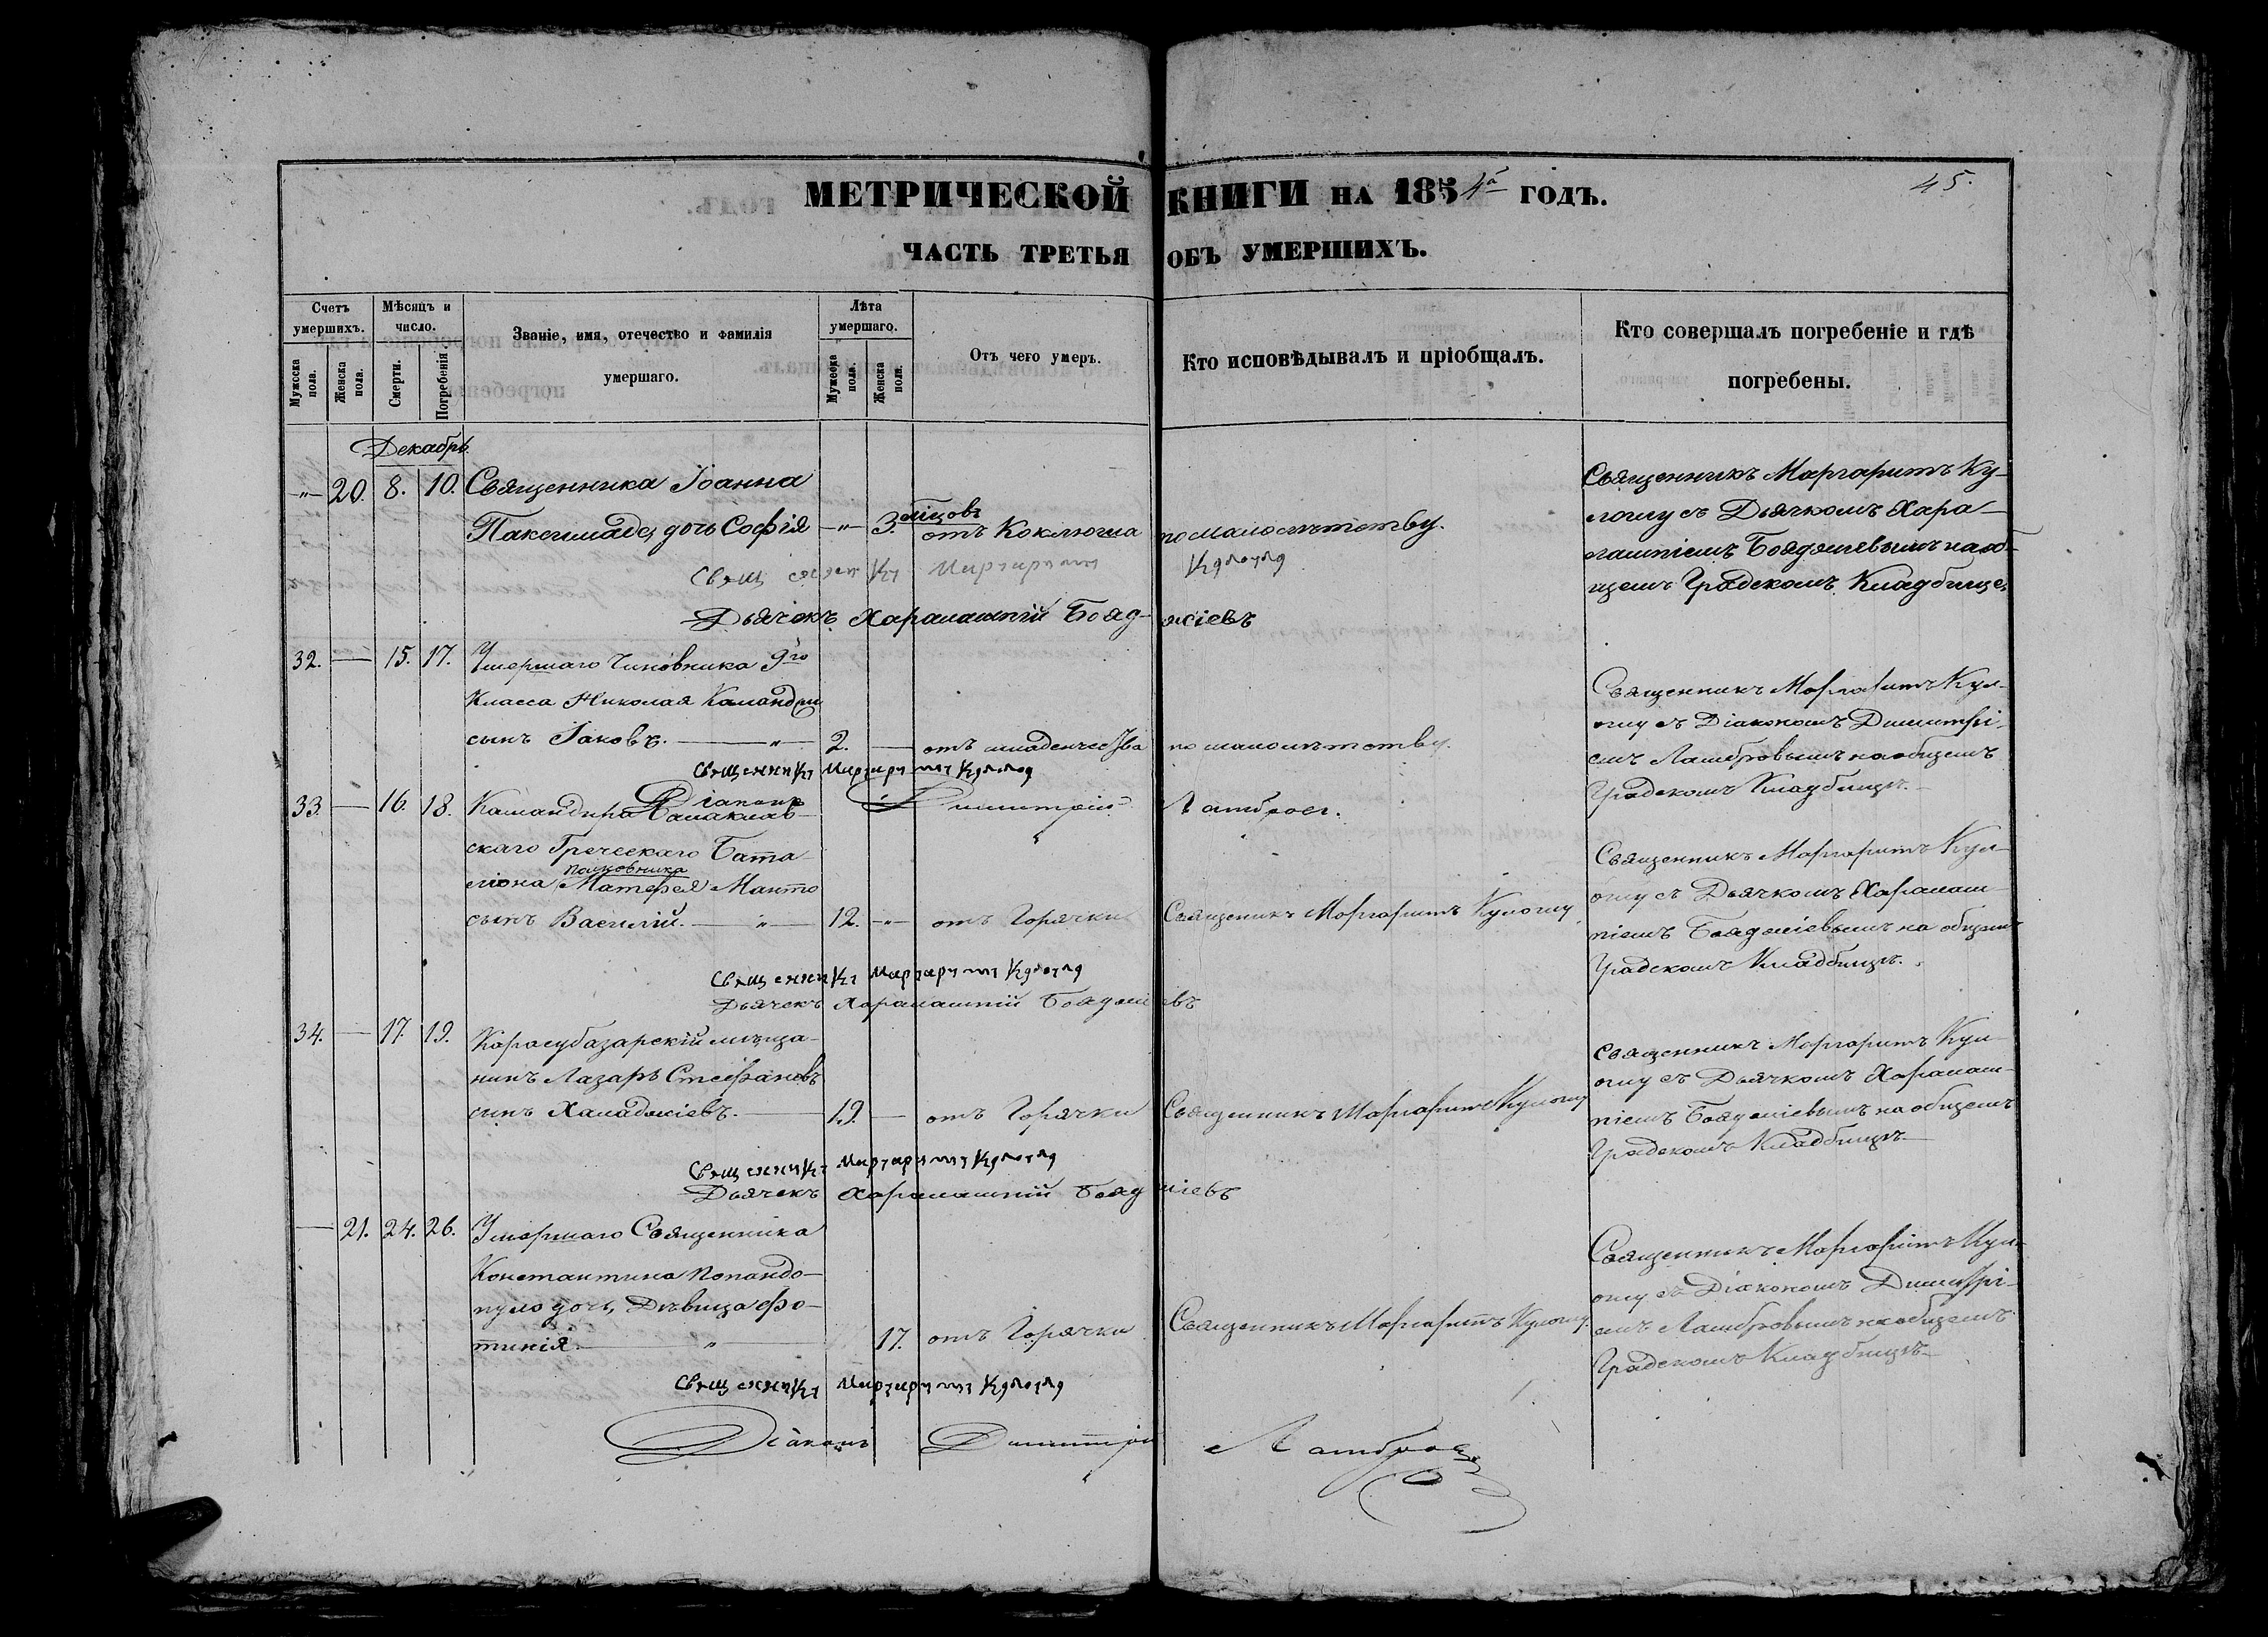 МЕТРИЧЕСКОЙ КНИГИ НА 1854ᵃ ГОДЪ.
45.
ЧАСТЬ ТРЕТЬЯ ОБЪ УМЕРШИХЪ.
Счетъ умершихъ.
Мужеска пола.
Женска пола.
Мѣсяцъ и число.
Смерти.
Погребенія.
Званіе, имя, отечество и фамилія
умершаго.
Лѣта умершаго.
Мужеска пола.
Женска пола.
Отъ чего умеръ.
Кто исповѣдывалъ и пріобщалъ.
Кто совершалъ погребеніе и гдѣ
погребены.
Декабрь
-"- 20. 8. 10. Священника Іоанна
Паксимада, дочь Софія -"- 3. мѣсцовъ отъ Коклюша по малолѣтству.
Священникъ Маргаритъ Ку-
лошу съ Дьячкомъ Хара-
лампіемъ Бояджіевымъ на об-
щемъ Градскомъ Кладбище.
Священникъ Маргаритъ Кулошу
Дьячекъ Харалампій Бояджіевъ
32. — 15. 17. Умершаго Чиновника 9го
Класса Николая
сынъ Іаковъ. — " — 2. — отъ младенчества по малолѣтству.
Священникъ Маргаритъ Кул-
ошу съ Діакономъ Димитрі-
емъ Ламбровымъ на общемъ
Градскомъ Кладбищѣ.
Священникъ Маргаритъ Кулошу
Діаконъ Димитрій Ламбровъ.
33. — 16. 18. Командира Балаклав-
скаго Греческаго Бата-
ліона полковника Матфея Манто
сынъ Василій. — " — 12. -"- отъ Горячки Священникъ Маргаритъ Кулошу
Священникъ Маргаритъ Кул-
ошу съ Дьячкомъ Харалам-
піемъ Бояджіевымъ на общемъ
Градскомъ Кладбищѣ.
Священникъ Маргаритъ Кулошу
Дьячекъ Харалампій Бояджіевъ
34. — 17. 19. Карасубазарскій мѣща-
нинъ Лазарь Стефановъ
сынъ Халаджіевъ. — 19. — отъ Горячки Священникъ Маргаритъ Кулошу
Священникъ Маргаритъ Кул-
ошу съ Дьячкомъ Харалам-
піемъ Бояджіевымъ на общемъ
Градскомъ Кладбищѣ
Священникъ Маргаритъ Кулошу
Дьячекъ Харалампій Бояджіевъ
— 21. 24. 26. Умершаго Священника
Константина Попандо-
пуло дочь, Дѣвица Фо-
тинія. — " — 17. отъ Горячки Священникъ Маргаритъ Кулошу.
Священникъ Маргаритъ Кул-
ошу съ Діакономъ Димитрі-
емъ Ламбровымъ на общемъ
Градскомъ Кладбищѣ
Священникъ Маргаритъ Кулошу
Діаконъ Димитрій Ламбровъ